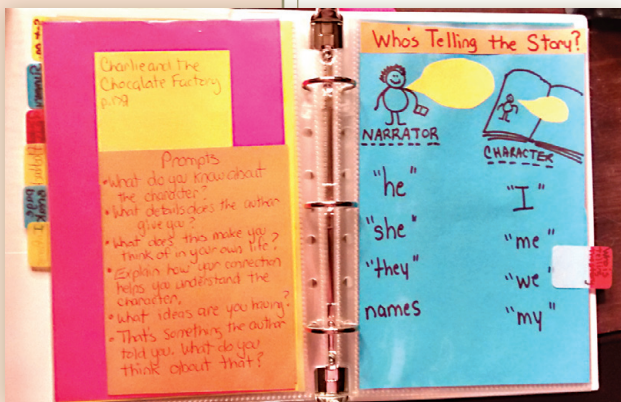 Charlie and the
Chocalate Factory
p.
Prompts
• What do you know about
the character?
• What details does the author
give you?
• What does this make you
think of in your own life?
• Explain how your connection
helps you understand the
character.
• What ideas are you having?
• That's something the author
told you. What do you
think about that?
Who's Telling the Story?
NARRATOR
"he"
"she"
"they"
names
CHARACTER
"I"
"me"
"we"
"my"